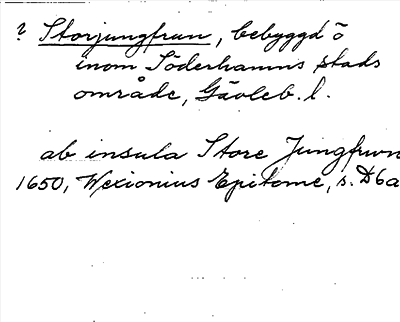 ? Storjungfrun, bebyggd ö
inom Söderhamns stads
område, Gävleb. l.
ab insula Store Jungfrun
1650, Wexionius Epitome, s. D6a